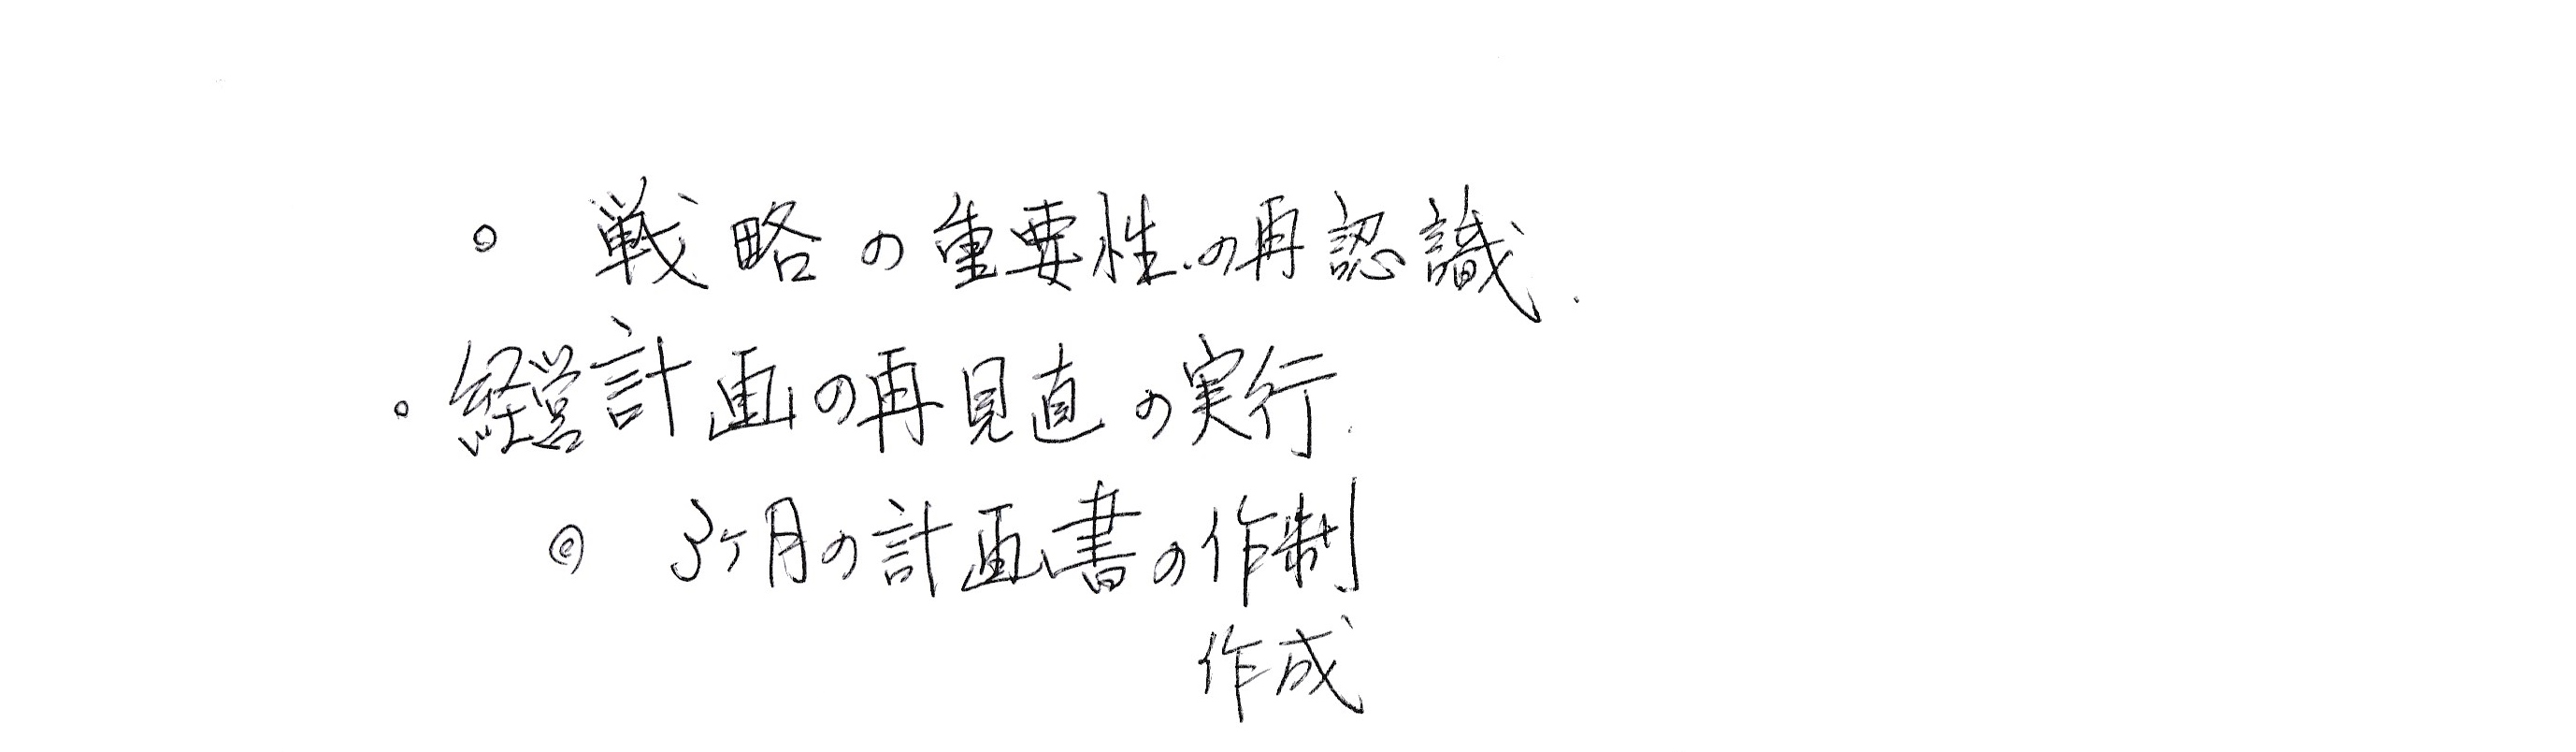 ○ 戦略の重要性の再認識.
○ 経営計画の再見直の実行.
◎ 3ヶ月の計画書の作制
作成